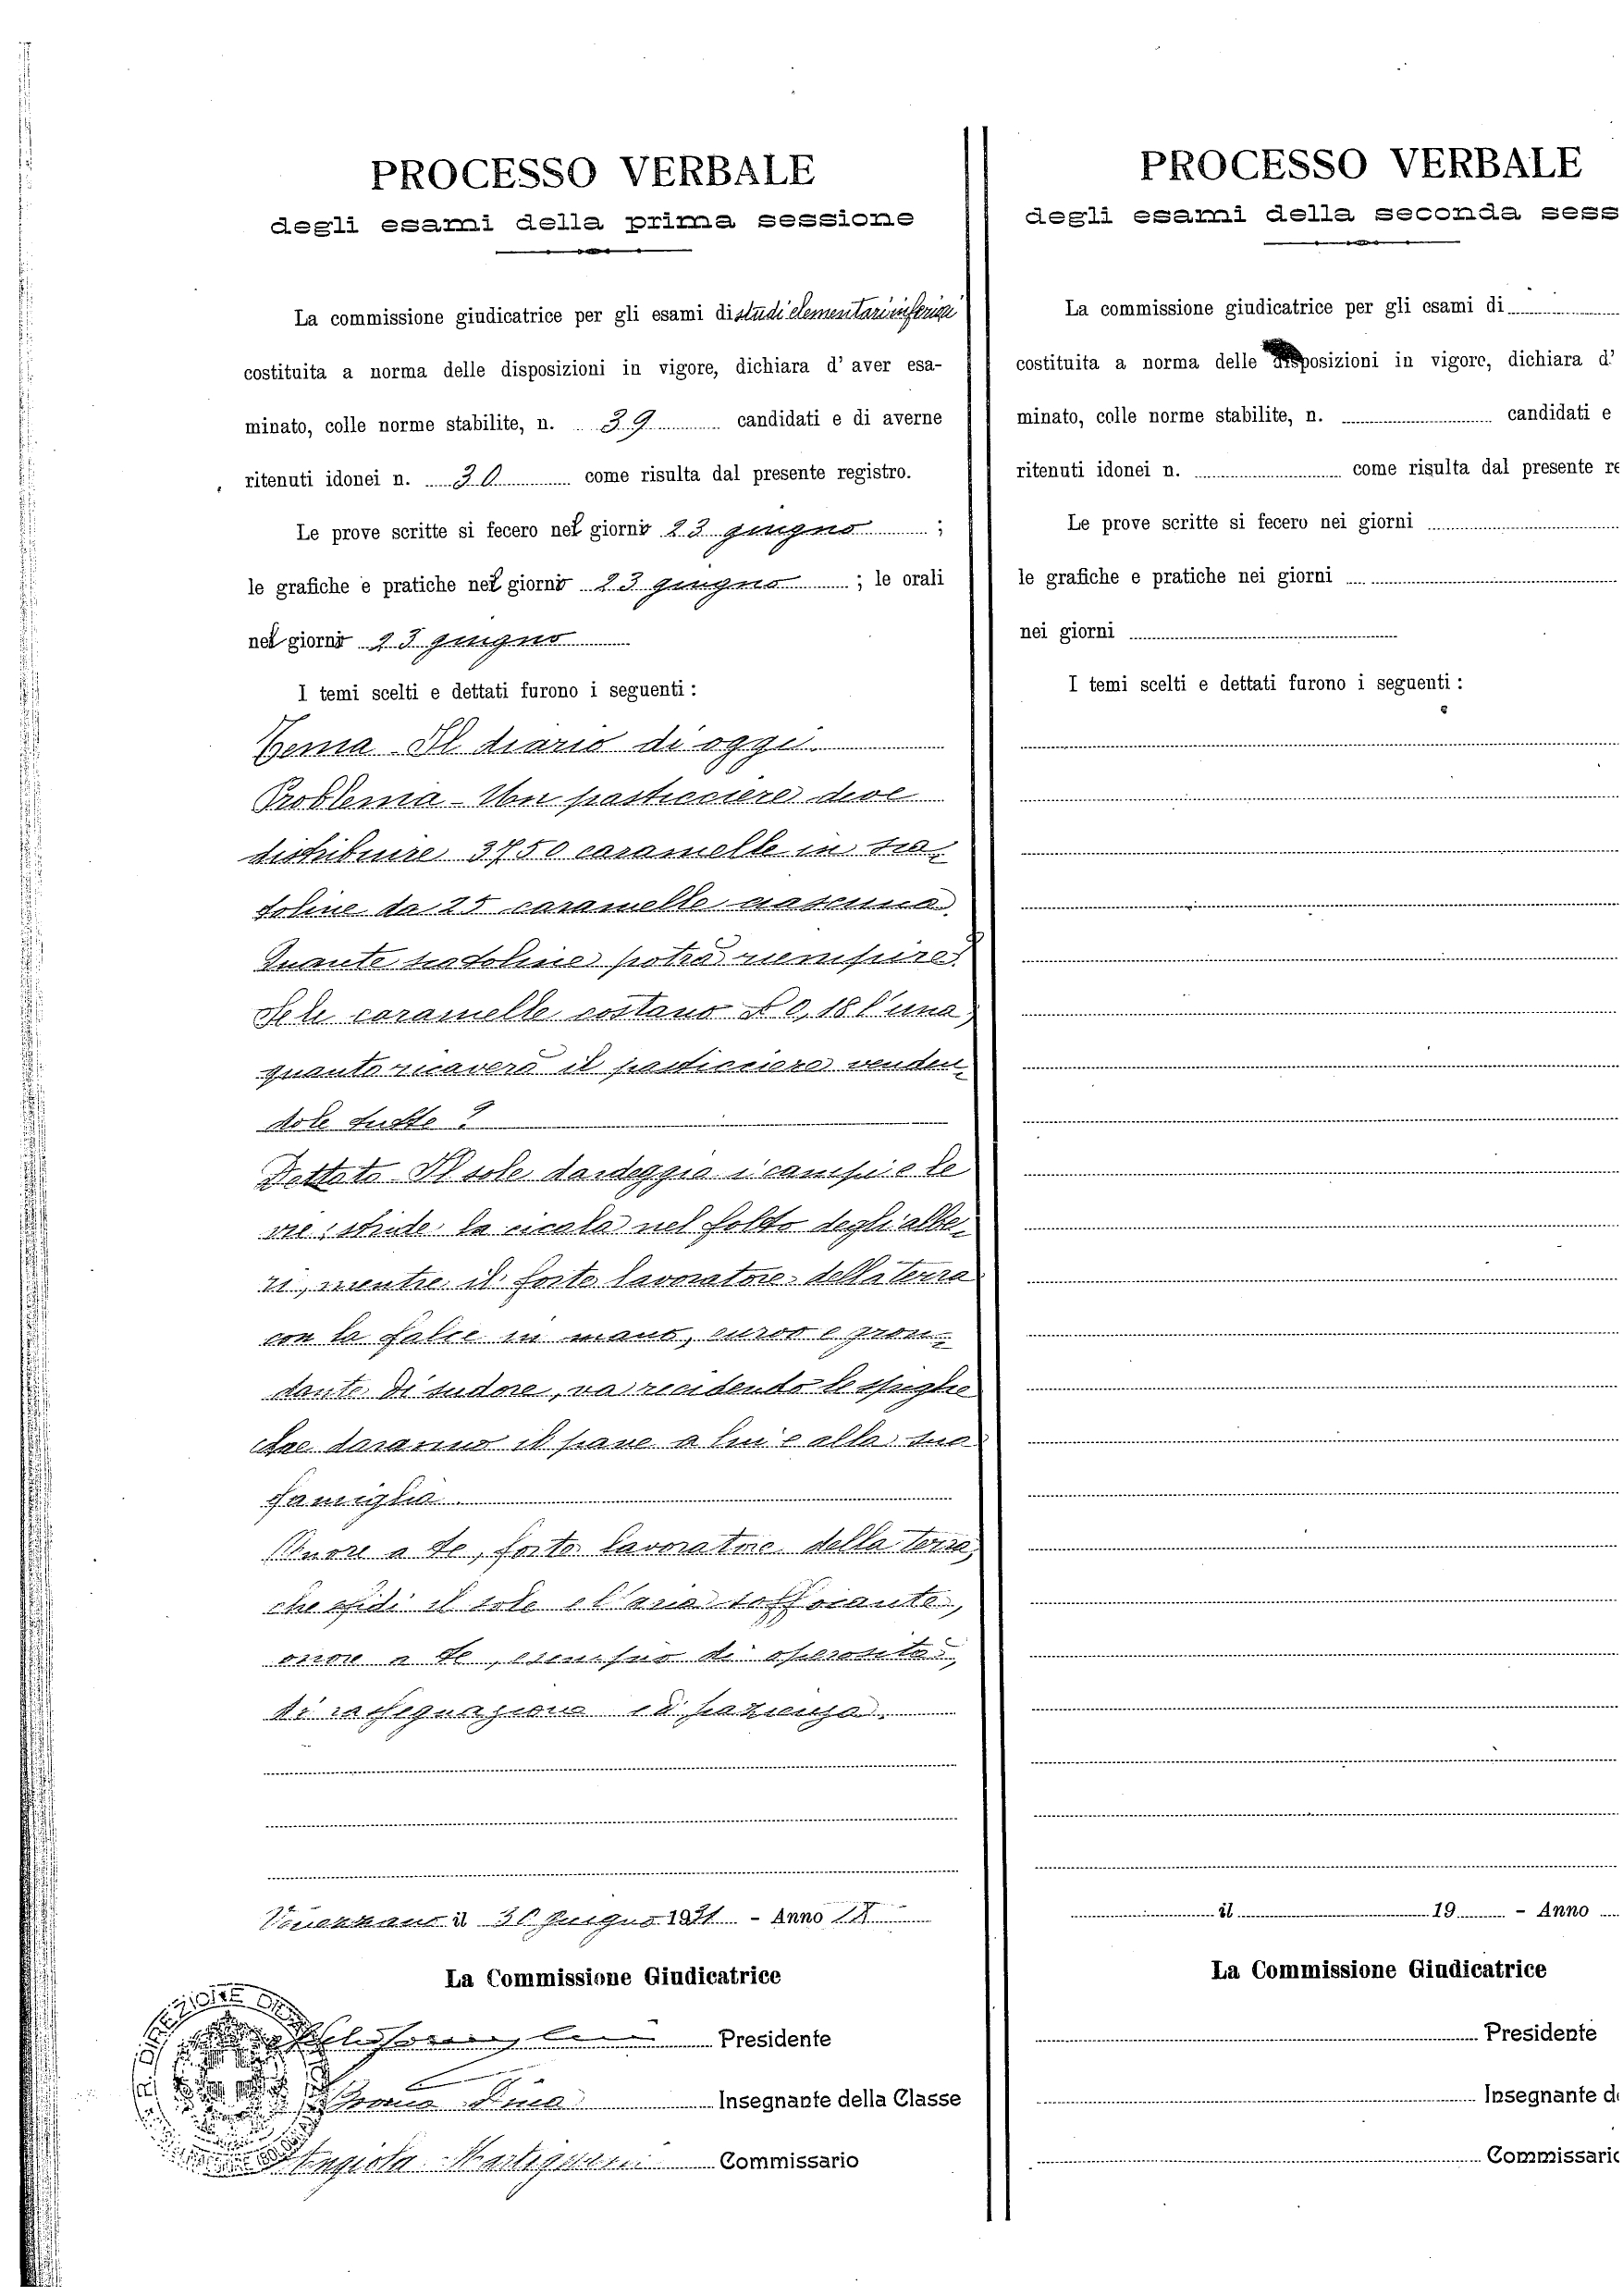 PROCESSO VERBALE
degli esami della prima sessione
La commissione giudicatrice per gli esami di studi elementari inferiori
costituita a norma delle disposizioni in vigore, dichiara d' aver esa-
minato, colle norme stabilite, n. 39 candidati e di averne
ritenuti idonei n. 30 come risulta dal presente registro.
Le prove scritte si fecero nel giorno 23 giugno ;
le grafiche e pratiche nel giorno 23 giugno ; le orali
nel giorno 23 giugno
I temi scelti e dettati furono i seguenti :
Tema - Il diario di oggi.
Problema - Un pasticciere deve
distribuire 3750 caramelle in sca-
toline da 25 caramelle ciascuna.
Quante scatoline potrà riempire?
Se le caramelle costano £ 0,18 l'una,
quanto ricaverà il pasticciere venden-
dole tutte ?
Dettato - Il sole dardeggia i campi e le
vie ; stride la cicala nel folto degli albe-
ri, mentre il forte lavoratore della terra
con la falce in mano, curvo e gron-
dante di sudore, va recidendo le spighe
che daranno il pane a lui e alla sua
famiglia.
Onore a te, forte lavoratore della terra,
che sfidi il sole e l'aria soffocante,
onore a te, esempio di operosità,
di rassegnazione e di pazienza.
il 30 giugno 1931 - Anno
La Commissione Giudicatrice
Presidente
Insegnante della Classe
Angiola Commissario
PROCESSO VERBALE
degli esami della seconda sess
La commissione giudicatrice per gli esami di
costituita a norma delle disposizioni in vigore, dichiara d'
minato, colle norme stabilite, n. candidati e
ritenuti idonei n. come risulta dal presente re
Le prove scritte si fecero nei giorni
le grafiche e pratiche nei giorni
nei giorni
I temi scelti e dettati furono i seguenti :
il 19 - Anno
La Commissione Giudicatrice
Presidente
Insegnante d
Commissario